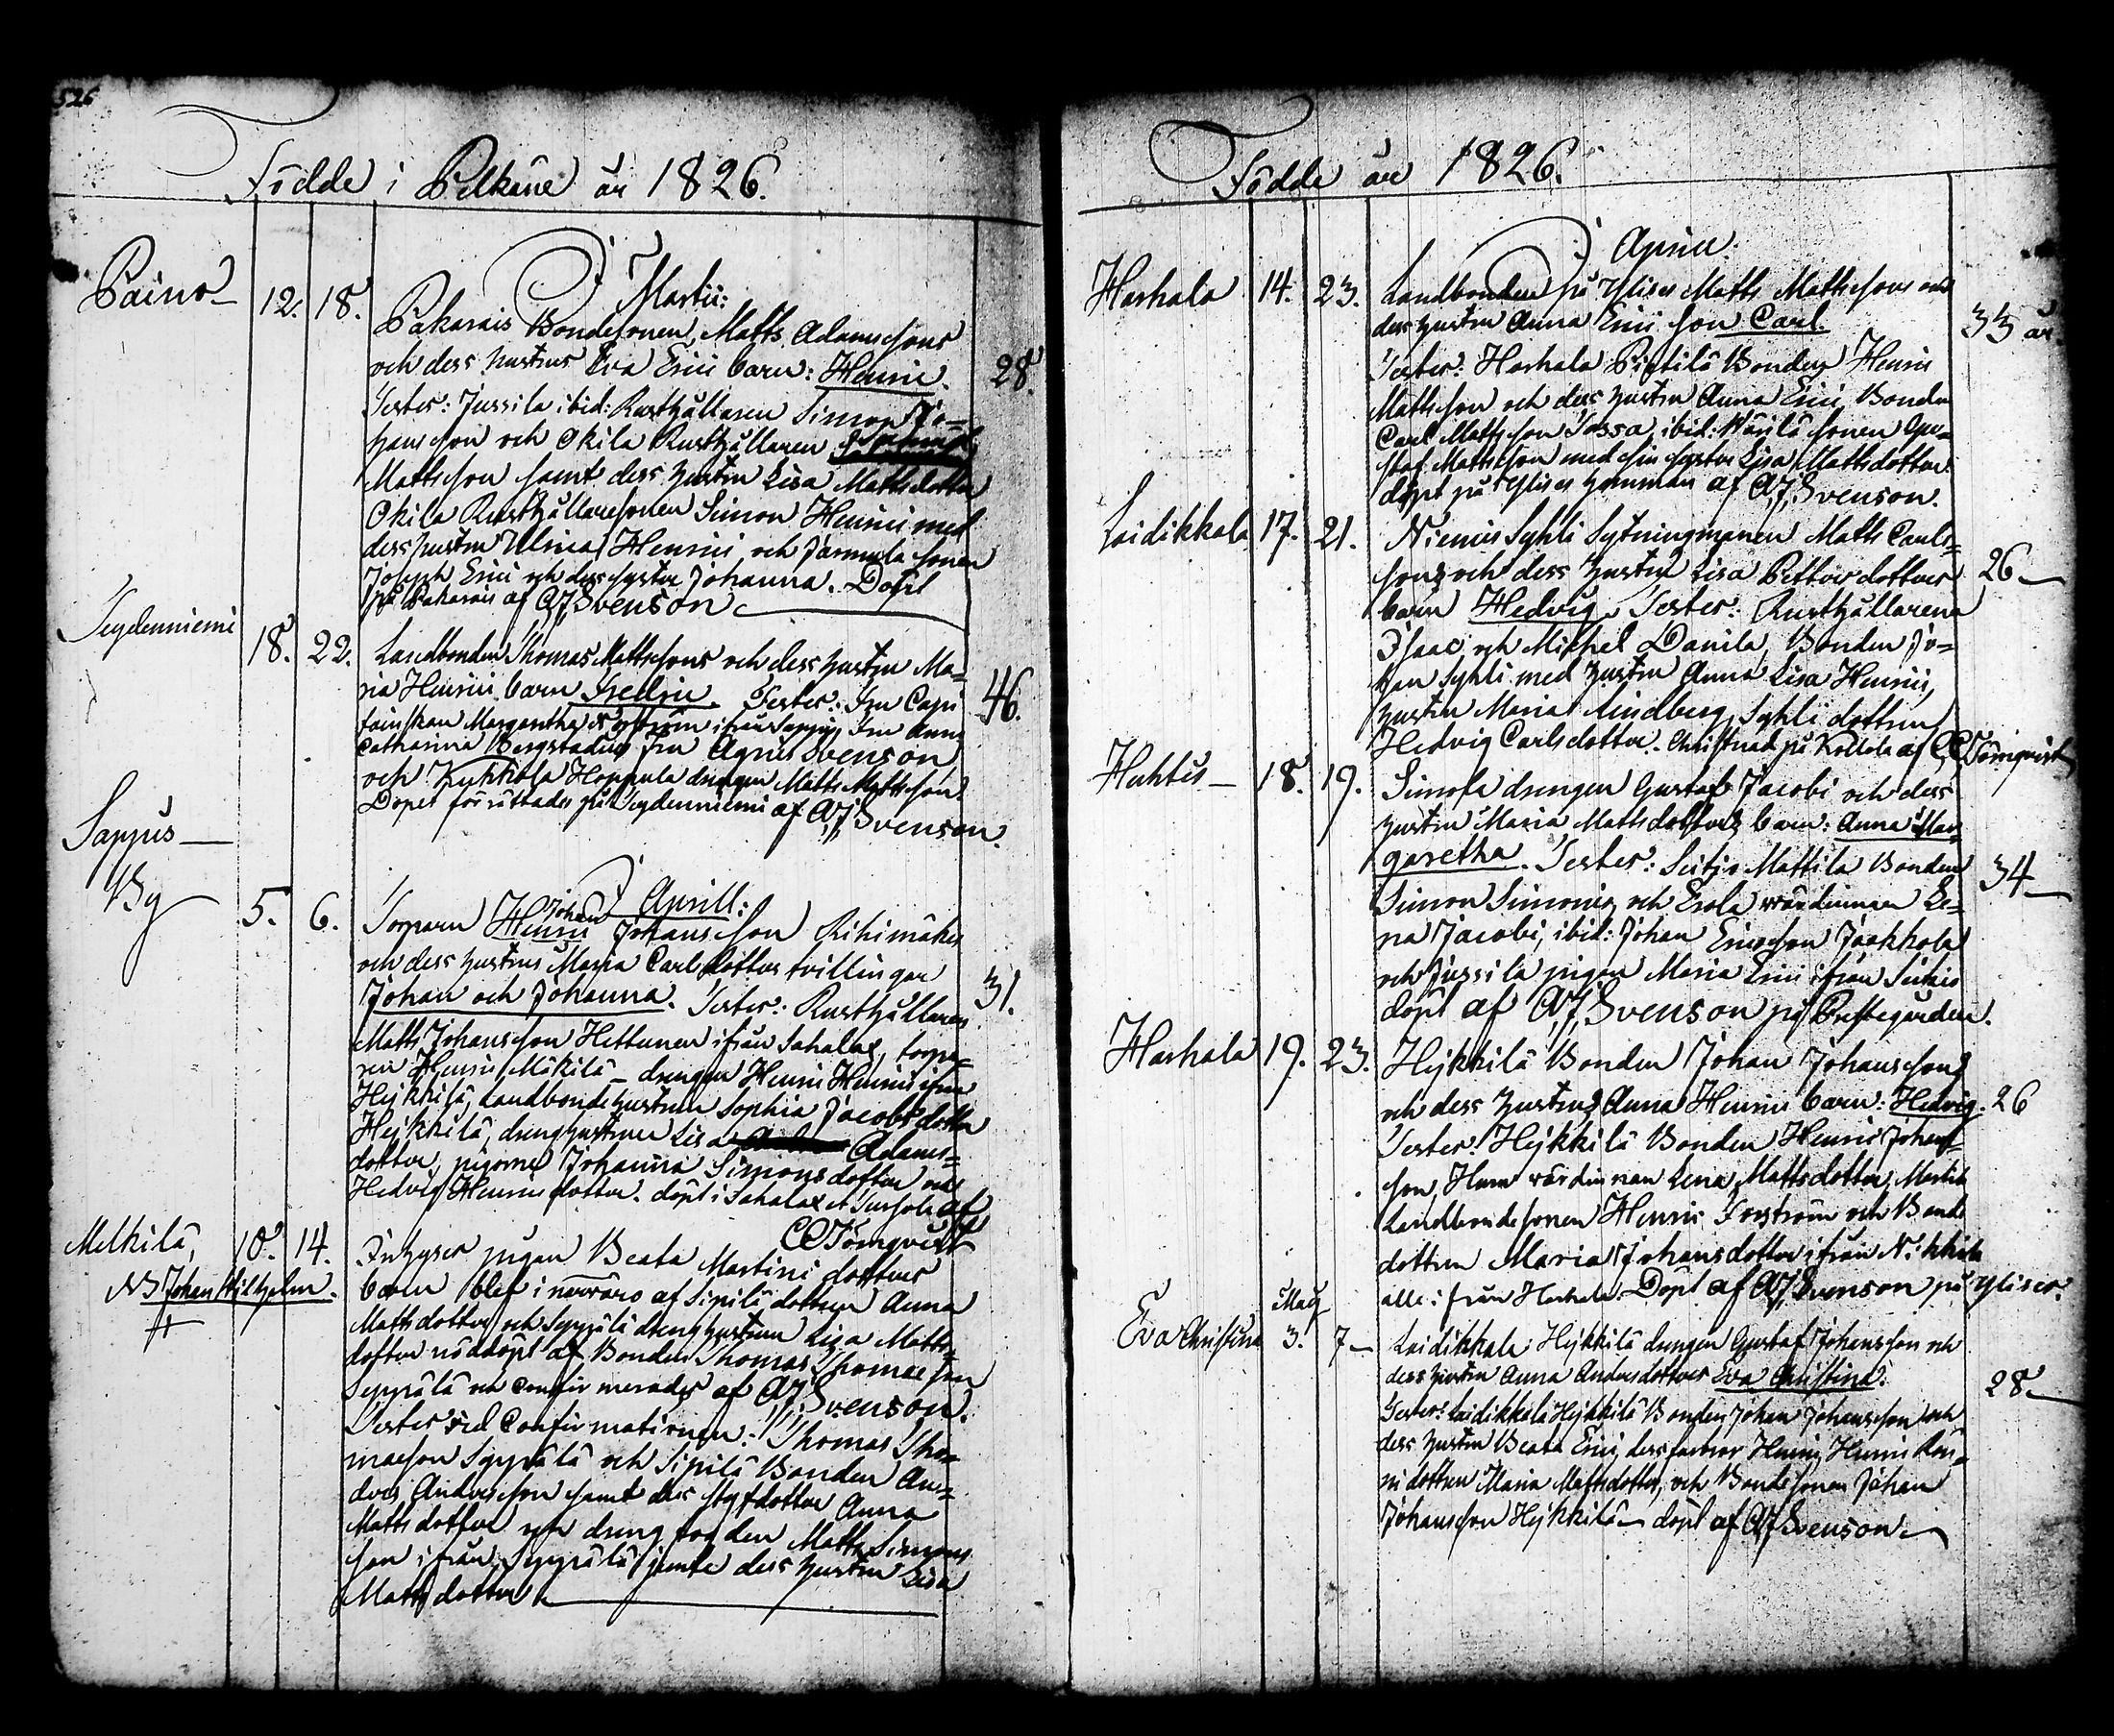 526
Födde i Pelkäne år 1826.
i Martii:
Päinö 12. 18. Pakarais Bondesonen Matts Adamssons
och dess hustrus Eva Erici barn: Henric. 28.
Tester: Jussila ibid: Rusthållaren Simon Jo=
hansson och Okila Rusthållaren
Mattsson samt dess hustru Lisa Mattsdotter
Okila Rusthållaresonen Simon Henrici med
dess hustru Ulrica Henrici och Jarmula sonen
Joseph Erici och dess syster Johanna. Döpt
på Pakarais af A.J. Svenson
Seydenniemi 18. 22. Landbonden Thomas Mattssons och dess hustru Ma=
ria Henrici barn Fredric Tester: Fru Capi 46.
tainskan Margaretha ifrån Sappus, Fru Anna
Catharina Bergstadius Fru Agnes Svenson
och Kukkola Hoppula drengen Matts Mattsson.
Dopet förrättades på Seydenniemi af A.J. Svenson.
i Aprill:
Sappus
By 5. 6. Torparen Henric Johan Johansson Rihimäkis
och dess hustrus Maria Carlsdotters tvillingar
Johan och Johanna. Tester: Rusthållaren 31.
Matts Johansson Hettunen ifrån Sahalax, torpa=
ren Henric Mäkilä drengen Henric Henrici ifrån
Heikkilä, Landbondehustrun Sophia Jacobsdotter
Heikkilä, drenghustrun Lisa Adams=
dotter, pigorne Johanna Simonsdotter och
Hedvig Henricsdotter. döpt i Sahalax af
C.C. Törnqvist
Mälkilä, 10. 14. Inhyses pigan Beata Martini dotters
NB Johan Wilhelm. barn blef i närvaro af Sipilä dottren Anna
Mattsdotter och Seppälä drenghustrun Lisa Matts=
dotter nöddöpt af Bonden Thomas Thomasson
Seppälä och confirmerades af A.J. Svenson.
Tester vid Confirmationen: Thomas Tho=
masson Seppälä och Sipilä Bonden An=
ders Andersson samt dess styfdotter Anna
Mattsdotter och dreng Matts Simons
son ifrån Seppälä jemte dess hustru Lisa
Mattsdotter
Födde år 1826.
i Aprill.
Harhala 14. 23. Landbonden på Ylises Matts Mattssons och
dess hustru Anna Erici son Carl. 33 år.
Tester: Harhala Pietilä Bonden Henric
Mattsson och dess hustru Anna Erici Bonden
Carl Mattsson Jossa, ibid: sonen Gu=
staf Mattsson med sin syster Lisa Mattsdotter.
döpt på Ylises hemman af A.J. Svenson.
Laidikkala 17. 21. Niemis Syhli Sytningmannen Matts Carls=
sons och dess hustru Lisa Petters dotters 26
barn Hedvig. Tester: Rusthållarena
Isaac och Michel Danila, Bonden Jo=
han Syhli med hustru Anna Lisa Henrici,
hustru Maria Lindberg, Syhli dottren
Hedvig Carlsdotter. Christnad på Kollola af C.C. Törnqvist
Huhtis 18. 19. Simola drengen Gustaf Jacobi och dess
hustru Maria Mattsdotters barn: Anna Mar=
garetha. Tester: Seitjo Mattila Bonden 34
Simon Simonis och Erola värdinnan Le=
na Jacobi, ibid: Johan Ericsson Jaakkola
och Jussila pigan Maria Erici ifrån
döpt af A.J. Svenson på Prestegården.
Harhala 19. 23. Heikkilä Bonden Johan Johanssons
och dess hustrus Anna Henrici barn: Hedvig. 26
Tester: Heikkilä Bonden Henric Johans
son, värdinnan Lena Mattsdotter,
Landbondesonen Henric Forström och Bonde
dottren Maria Johansdotter ifrån Nikkilä
alle ifrån Harhala. Döpt af A.J. Svenson på Ylises.
Maij
Eva Christina 3. 7 Laidikkala Heikkilä drengen Gustaf Johansson och
dess hustru Anna Andersdotters Eva Christina. 28
Tester: Laidikkala Heikkilä Bonden Johan Johansson och
dess hustru Beata Erici, dess farbror Henric Henrici
dottren Maria Mattsdotter, och Bondesonen Johan
Johansson Heikkilä döpt af A.J. Svenson